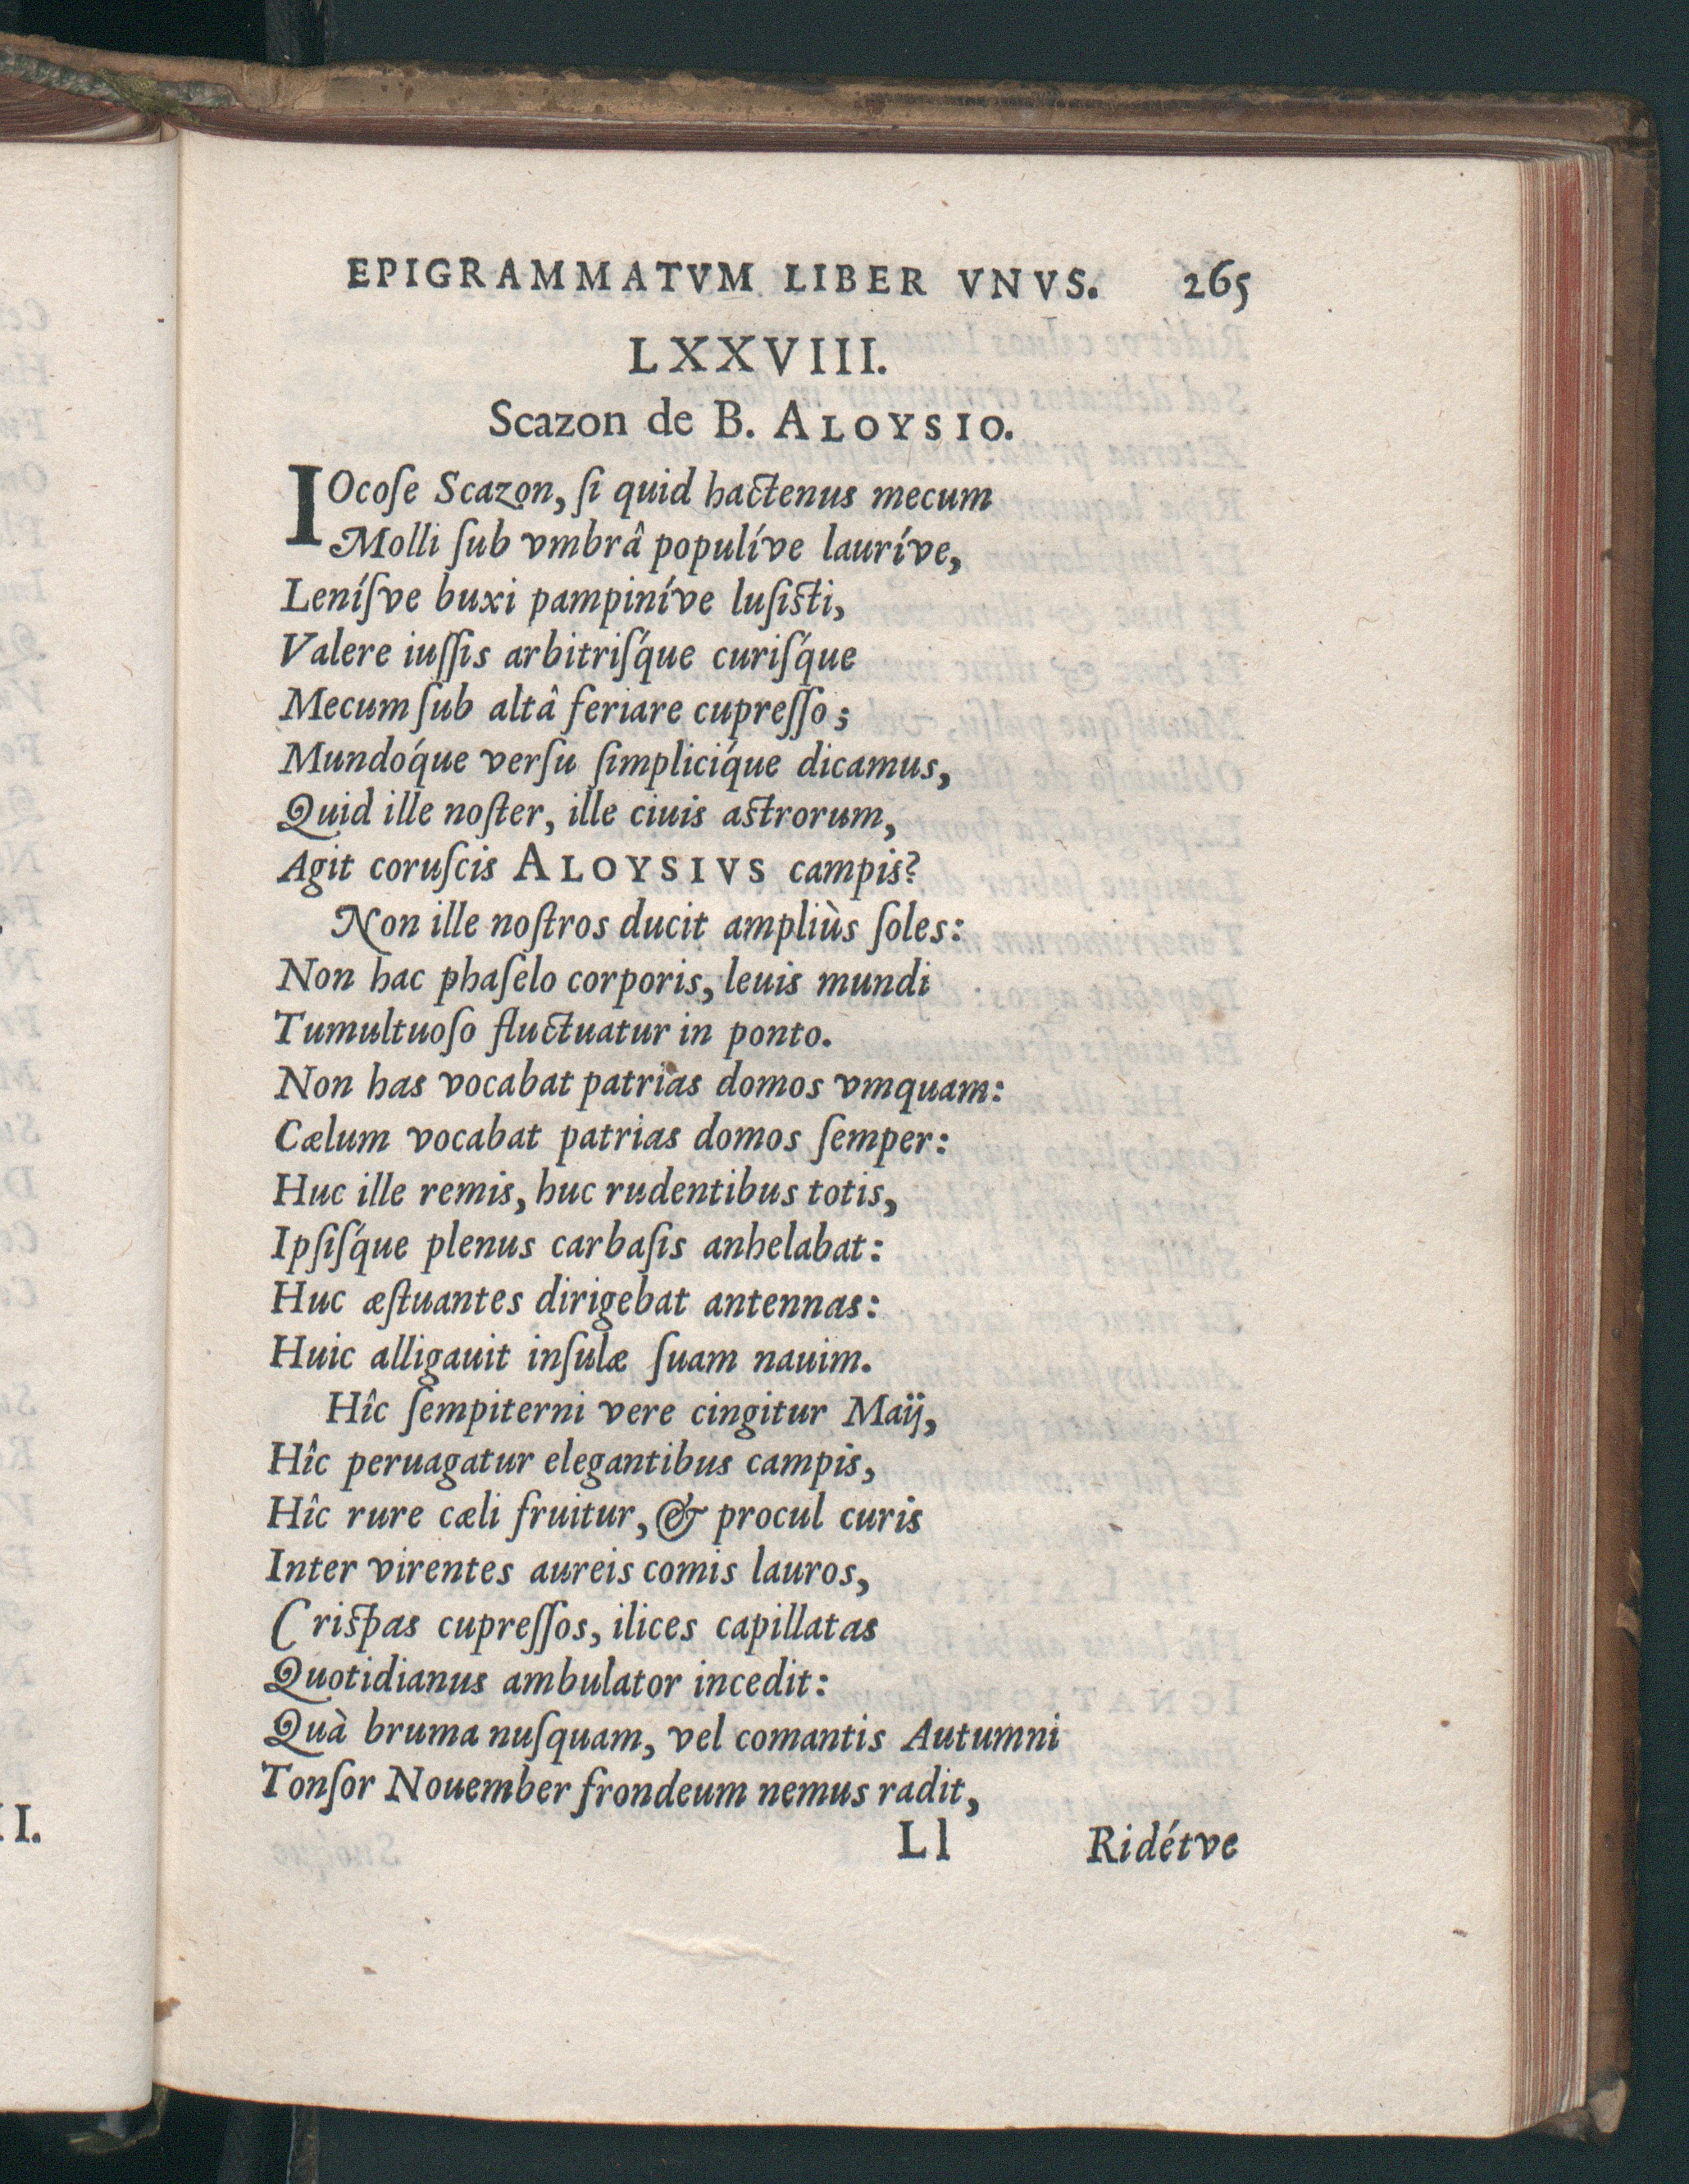 EPIGRAMMATVM LIBER VNVS. 265
LXXVIII.
Scazon de B. ALOYSIO.
IOcoſe Scazon, ſi quid hactenus mecum
Molli ſub vmbrâ populíve lauríve,
Leníſve buxi pampiníve luſisti,
Valere iuſſis arbitriſq́ue curiſq́ue
Mecum ſub altâ feriare cupreſſo;
Mundoq́ue verſu ſimpliciq́ue dicamus,
Quid ille noſter, ille ciuis astrorum,
Agit coruſcis ALOYSIVS campis?
Non ille noſtros ducit ampliùs ſoles:
Non hac phaſelo corporis, leuis mundi
Tumultuoſo fluctuatur in ponto.
Non has vocabat patrias domos vmquam:
Cælum vocabat patrias domos ſemper:
Huc ille remis, huc rudentibus totis,
Ipſiſq́ue plenus carbaſis anhelabat:
Huc æſtuantes dirigebat antennas:
Huic alligauit inſulæ ſuam nauim.
Hîc ſempiterni vere cingitur Maij,
Hîc peruagatur elegantibus campis,
Hîc rure cæli fruitur, & procul curis
Inter virentes aureis comis lauros,
Crispas cupreſſos, ilices capillatas
Quotidianus ambulator incedit:
Quà bruma nuſquam, vel comantis Autumni
Tonſor Nouember frondeum nemus radit,
Ll Ridétve
II.